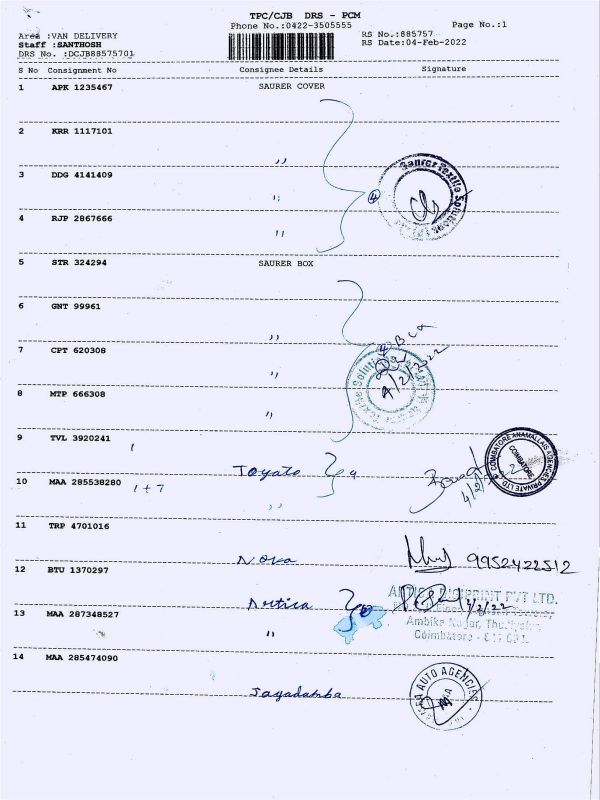 TPC/CJB DRS - PCM
Phone No.:0422-3505555
Page No.:1
Area :VAN DELIVERY
RS No.:885757
Staff :SANTHOSH
RS Date:04-Feb-2022
DRS No. :DCJB88575701
S No Consignment No Consignee Details Signature
1 APK 1235467 SAURER COVER
2 KRR 1117101
,,
3 DDG 4141409
,,
4 RJP 2867666
,,
Saurer Textile Solutions
4
5 STR 324294 SAURER BOX
6 GNT 99961
,,
4 Box
7 CPT 620308
,,
4/2/2022
8 MTP 666308
,,
9 TVL 3920241
1
Toyato
COIMBATORE ANAMALLAIS AGENCIES PRIVATE LTD
COIMBATORE
10 MAA 285538280 1+7
,,
4/2/
11 TRP 4701016
Nova
9952422512
12 BTU 1370297
Artica
PRINT PVT LTD.
4/2/22
13 MAA 287348527
,,
Ambika Nagar,
Coimbatore - 641
14 MAA 285474090
Jagadamba
AUTO AGENCIES